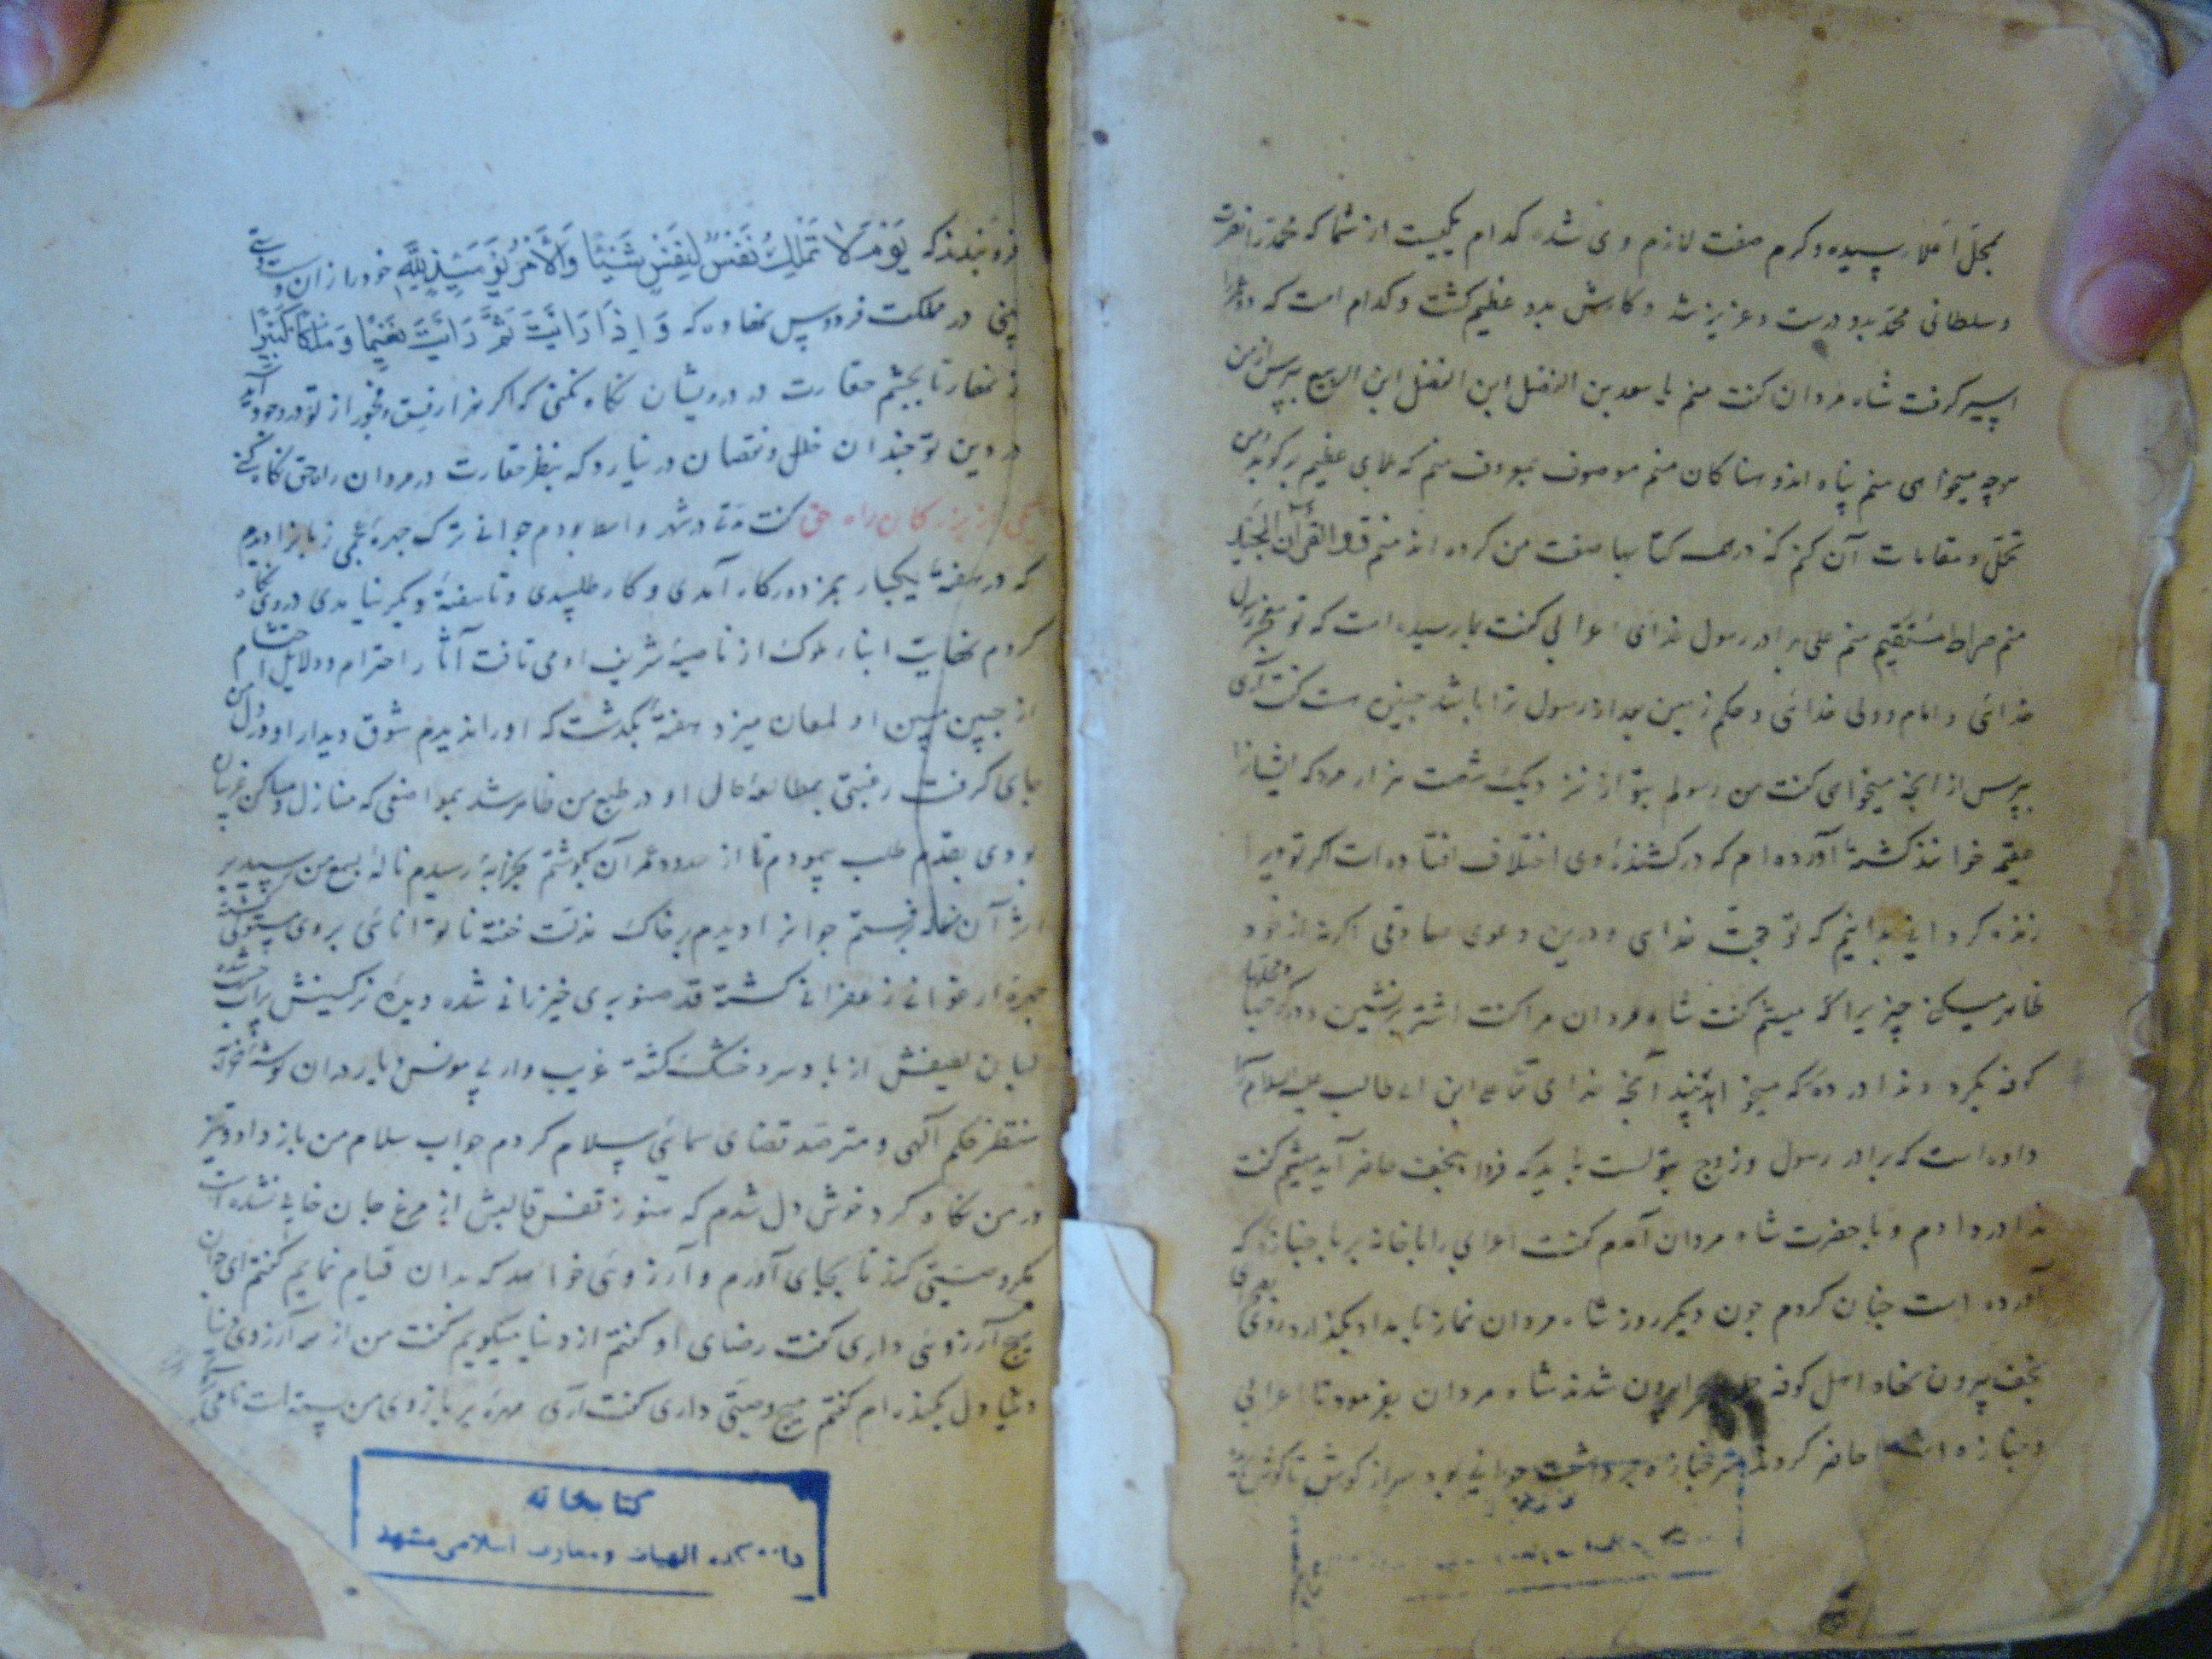 بمحل اعلا رسیده و کرم صفت لازم وی شده کدام یکیست از شما که محمد را نصرت
و سلطانی محمد بدو درست و عزیز شد و کارش بدو عظیم کشت و کدام است که دو عمرو را
اسیر کرفت شاه مردان کفت منم یا سعد بن الفضل ابن الربیع بپرس از من
هرچه میخواهی منم پناه اندوهناکان منم موصوف بمعروف منم که بلاهای عظیم بر کوبد من
تحمل و مقامات آن کنم که در همه کتابها صفت من کرده اند منم ق والقرآن المجید
منم صراط مستقیم منم علی برادر رسول خدای اعرابی کفت بما رسیده است که تو معجز رسول
خدائی و امام و ولی خدائی و حکم زمین بعد از رسول ترا باشد چنین هست کفت آری
بپرس از آنچه میخواهی کفت من رسولم بتو از نزدیک شصت هزار مرد که ایشانرا
عقیمه خوانند کشته آورده ام که در کشنده وی اختلاف افتاده است اکر تو ویرا
زنده کردانی بدانیم که تو حجت خدای و درین دعوی صادقی اکر نه از خود
ظاهر میکنی چیزیرا که میثم کفت شاه مردان مرا کفت اشتر برنشین و در کوچها و محلتها
کوفه بکرد و ندا در ده که میخواهد ببیند آنچه خدای تعالی علی ابن ابی طالب علیه السلام را
داده است که برادر رسول و زوج بتولست باید که فردا بنجف حاضر آید میثم کفت
ندا در دادم و با حضرت شاه مردان آمدم کفت اعرابی را با خانه بر با جنازه که
آورده است چنان کردم چون دیکر روز شاه مردان نماز بامداد بکذارد روی
بنجف بیرون نهاد اهل کوفه بیرون شدند شاه مردان بفرمود تا اعرابی
و جنازه را حاضر کردند سر جنازه برداشت جوانی بود سر از کوش تا کوش
فرو بندند که یَوْمَ لا تَمْلِكُ نَفْسٌ لِنَفْسٍ شَيْئًا وَالْأَمْرُ يَوْمَئِذٍ لِلَّهِ خود را از آن
در مملکت فردوس نهاده که وَإِذَا رَأَيْتَ ثَمَّ رَأَيْتَ نَعِيمًا وَمُلْكًا كَبِيرًا
زنهار تا بچشم حقارت در درویشان نکاه نکنی که اکر هزار فسق و فجور از تو در وجود آید
در دین تو چندان خلل و نقصان در نیارد که بنظر حقارت در مردان راه حق نکاه کنی
یکی از بزرکان راه حق کفت در شهر واسط بودم جوانی ترک چهره عجمی زبانرا دیدم
که در هفته یکبار بمزدور کاه آمدی و کار طلبیدی و تا هفته دیکر نیامدی در وی نکاه
کردم نهایت ابناء ملوک از ناصیه شریف او می تافت آثار احترام و دلایل احتشام
از جبین مبین او لمعان میزد هفته بکذشت که او را ندیدم شوق دیدار او در دل من
جای کرفت رغبتی بمطالعه حال او در طبع من ظاهر شد بمواضعی که منازل و مساکن غریبان
بودی بقدم طلب پیمودم تا از حدود عمران بکذشتم بخرابه رسیدم ناله بسمع من رسید بر
اثر آن ناله برفتم جوانرا دیدم بر خاک مذلت خفته ناتوانائی بروی مستولی کشته
چهره ارغوانی زعفرانی کشته قد صنوبری خیزرانی شده دیده نرکسینش
لبان لطیفش از باد سرد خشک کشته غریب وار بی مونس و یار
منتظر حکم الهی و مترصد قضای سمائی سلام کردم جواب سلام من باز داد و تیز
در من نکاه کرد خوش دل شدم که هنوز قفس قالبش از مرغ جان خالی نشده است
مکر وصیتی کند تا بجای آورم و آرزوئی خواهد که بدان قیام نمایم کفتم ای جوان
هیچ آرزوئی داری کفت رضای او کفتم از دنیا میکویم کفت من از سر آرزوی دنیا
دل بکنده ام کفتم هیچ وصیتی داری کفت آری مهره بر بازوی من بسته است
کتابخانه
دانشکده الهیات و معارف اسلامی مشهد